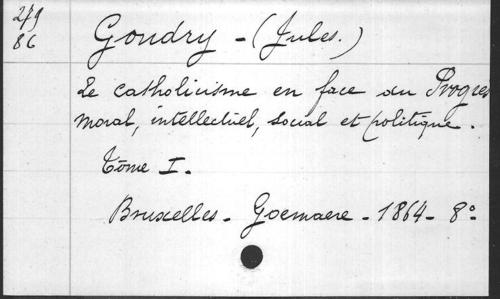 279
86
Goudry - (Jules.)
Le catholicisme en face du Progrès
moral, intellectuel, social et politique.
Tôme I.
Bruxelles - Goemaere - 1864 - 8°